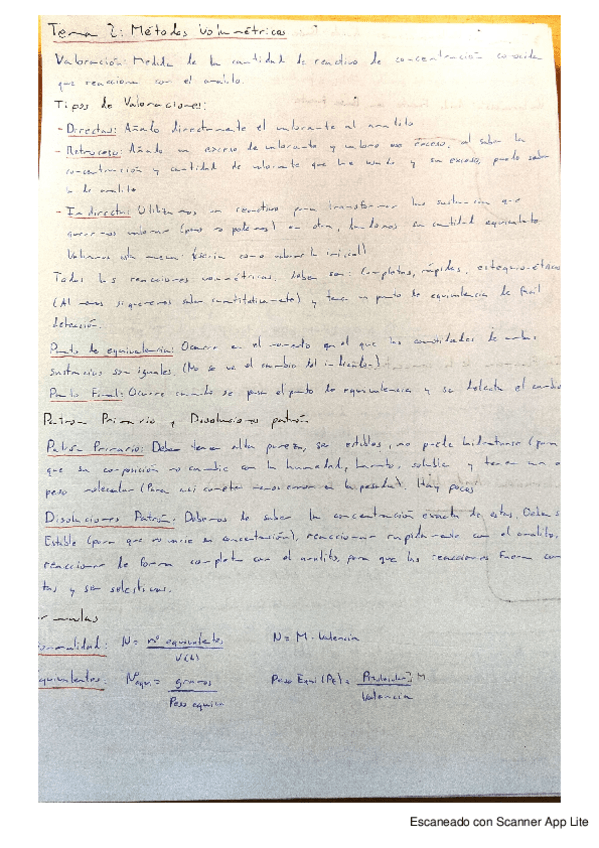 Tema 2: Métodos volumétricos
Valoración: Medida de la cantidad de reactivo de concentración conocida
que reacciona con el analito.
Tipos de Valoraciones:
- Directas: Añado directamente el valorante al analito
- Retroceso: Añado un exceso de valorante y valoro ese exceso, al saber la
concentración y cantidad de valorante que he usado y su exceso, puedo saber
la de analito
- Indirecta: Utilizamos un reactivo para transformar la sustancia que
queremos valorar (pues no podemos) en otra, dándonos su cantidad equivalente
Valoramos esta nueva. Sería como valorar la inicial
Todas las reacciones volumétricas deben ser: Completas, rápidas, estequiométricas
(Al menos si queremos saber cuantitativamente) y tener un punto de equivalencia de fácil
detección.
Punto de equivalencia: Ocurre en el momento en el que las cantidades de ambas
sustancias son iguales. (No se ve el cambio del indicador)
Punto Final: Ocurre cuando se pasa el punto de equivalencia y se detecta el cambio
Patrón Primario y Disoluciones patrón
Patrón Primario: Deben tener alta pureza, ser estables, no puede hidratarse (para
que su composición no cambie con la humedad, barato, soluble y tener un
peso molecular (Para así cometer menos error en la pesada). Hay pocos
Disoluciones Patrón: Debemos de saber la concentración exacta de estas. Deben
Estable (para que no varíe su concentración), reaccionar rápidamente con el analito,
reaccionar de forma completa con el analito, para que las reacciones fueran
tas y ser selectivas.
mulas
malidad: N = nº equivalentes / V(L) N = M · Valencia
quivalentes: Nº equi. = gramos / Peso equi Peso Equi (Pe) = M / Valencia
Escaneado con Scanner App Lite